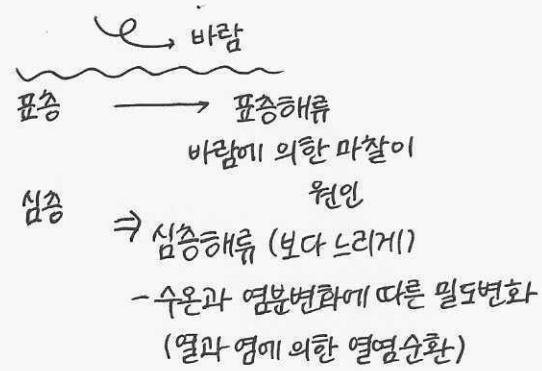 바람
표층 → 표층해류
바람에 의한 마찰이
원인
심층
⇒ 심층해류 (보다 느리게)
- 수온과 염분변화에 따른 밀도변화
(열과 염에 의한 열염순환)